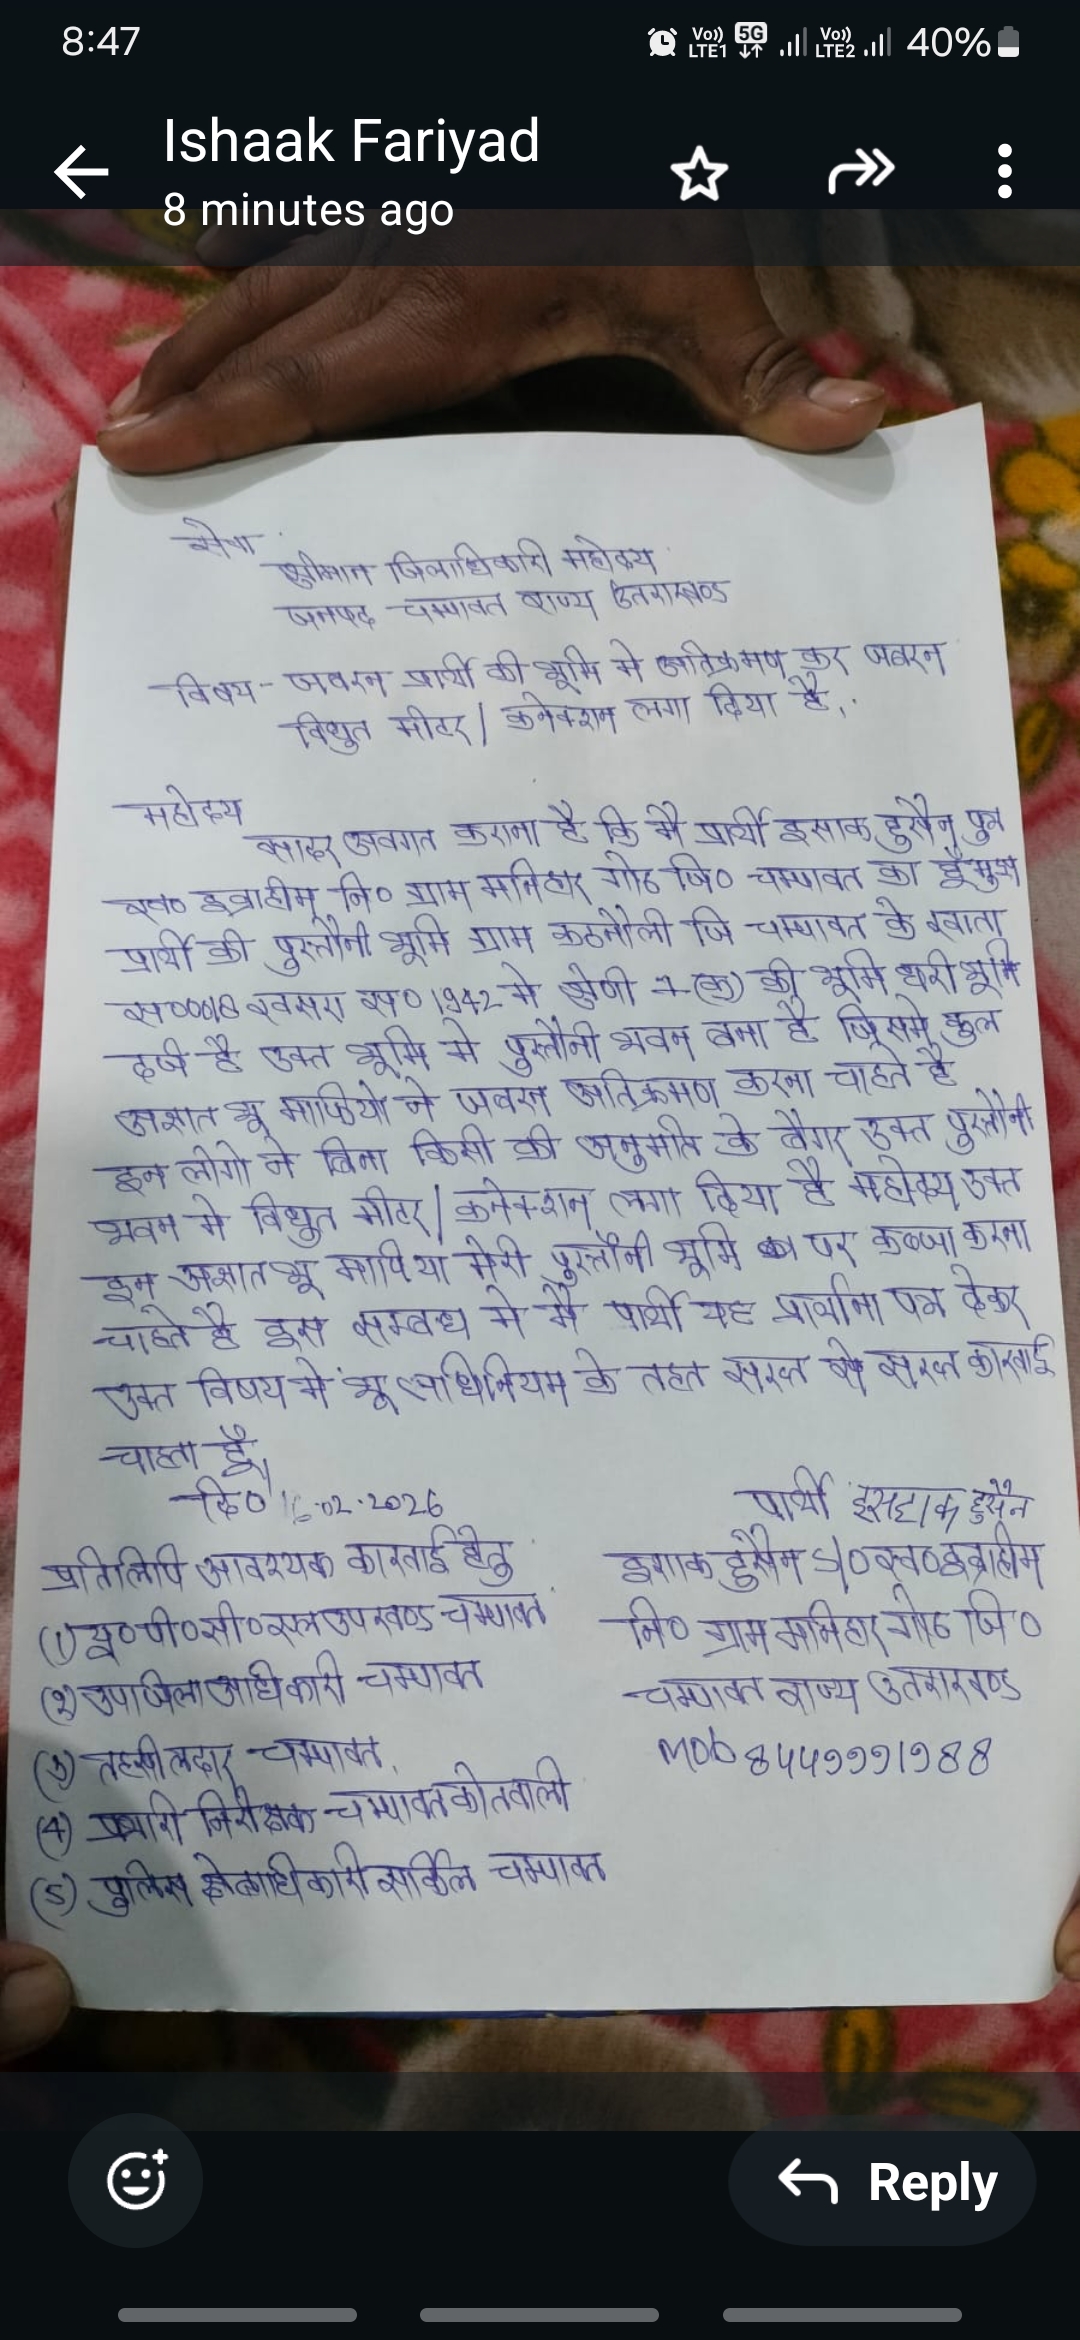 8:47
Vo)) LTE1 5G Vo)) LTE2 40%
Ishaak Fariyad
8 minutes ago
सेवा
श्रीमान जिलाधिकारी महोदय
जनपद चम्पावत राज्य उतराखण्ड
विषय - जबरन प्रार्थी की भूमि मे अतिक्रमण कर जबरन
विधुत मीटर / कनेक्शन लगा दिया है।
महोदय
सादर अवगत कराना है कि मै प्रार्थी इसाक हुसैन पुत्र
स्व० इब्राहीम नि० ग्राम मनिहार गोठ जि० चम्पावत का हूँ मुझ
प्रार्थी की पुस्तौनी भूमि ग्राम कठनौली जि चम्पावत के खाता
स० 0018 खसरा स० 1942 मे श्रेणी 1-(क) की भूमि धरी भूमि
दर्ज है उक्त भूमि मे पुस्तौनी भवन बना है जिसमे कुल
अज्ञात भू माफियो ने जबरन अतिक्रमण करना चाहते है
इन लोगो ने बिना किसी की अनुमति के बैगर उक्त पुस्तौनी
भवन मे विधुत मीटर / कनेक्शन लगा दिया है महोदय उक्त
इन अज्ञात भू मापिया मेरी पुस्तौनी भूमि पर कब्जा करना
चाहते है इस सम्बन्ध मे मै प्रार्थी यह प्रार्थना पत्र देकर
उक्त विषय मे भू अधिनियम के तहत सख्त से सख्त कारवाई
चाहता हूँ।
दि० 16.02.2026
प्रार्थी इसहाक हुसैन
प्रतिलिपि आवश्यक कारवाई हेतु
इशाक हुसैन S/० स्व० इब्राहीम
(1) यू० पी० सी० एल उपखण्ड चम्पावत
नि० ग्राम मनिहार गोठ जि०
(2) उपाजिलाअधिकारी चम्पावत
चम्पावत राज्य उतराखण्ड
(3) तहसीलदार चम्पावत
Mob 8449991988
(4) प्रभारी निरीक्षक चम्पावत कोतवाली
(5) पुलिस क्षेत्राधिकारी सर्किल चम्पावत
Reply